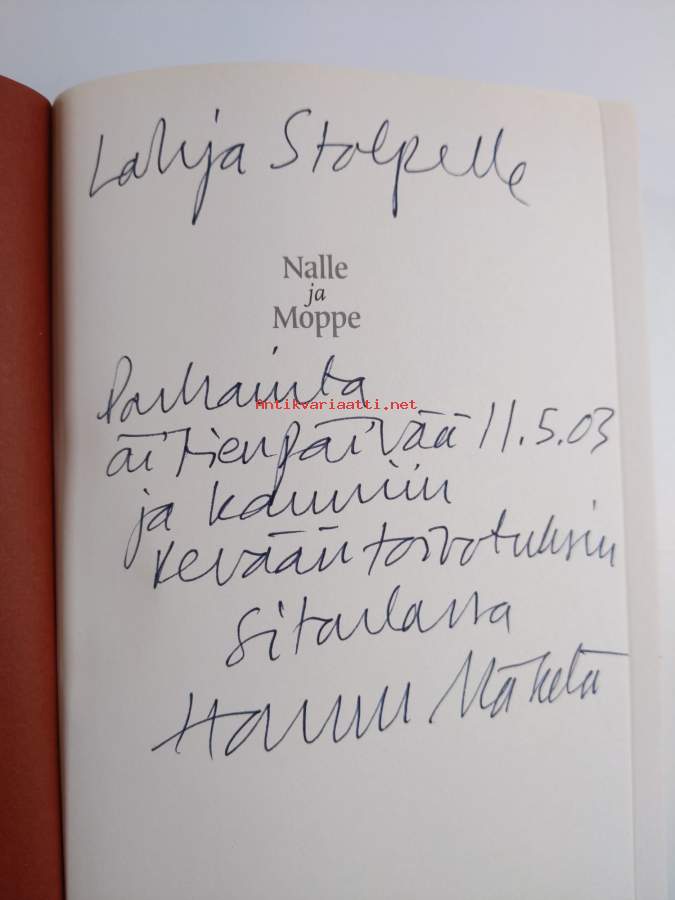 Lahja Stolpelle
Nalle
ja
Moppe
Parhainta
antikvariaatti.net
äitienpäivää 11.5.03
ja kauniin
kevään toivotuksin
Hannu Mäkelä